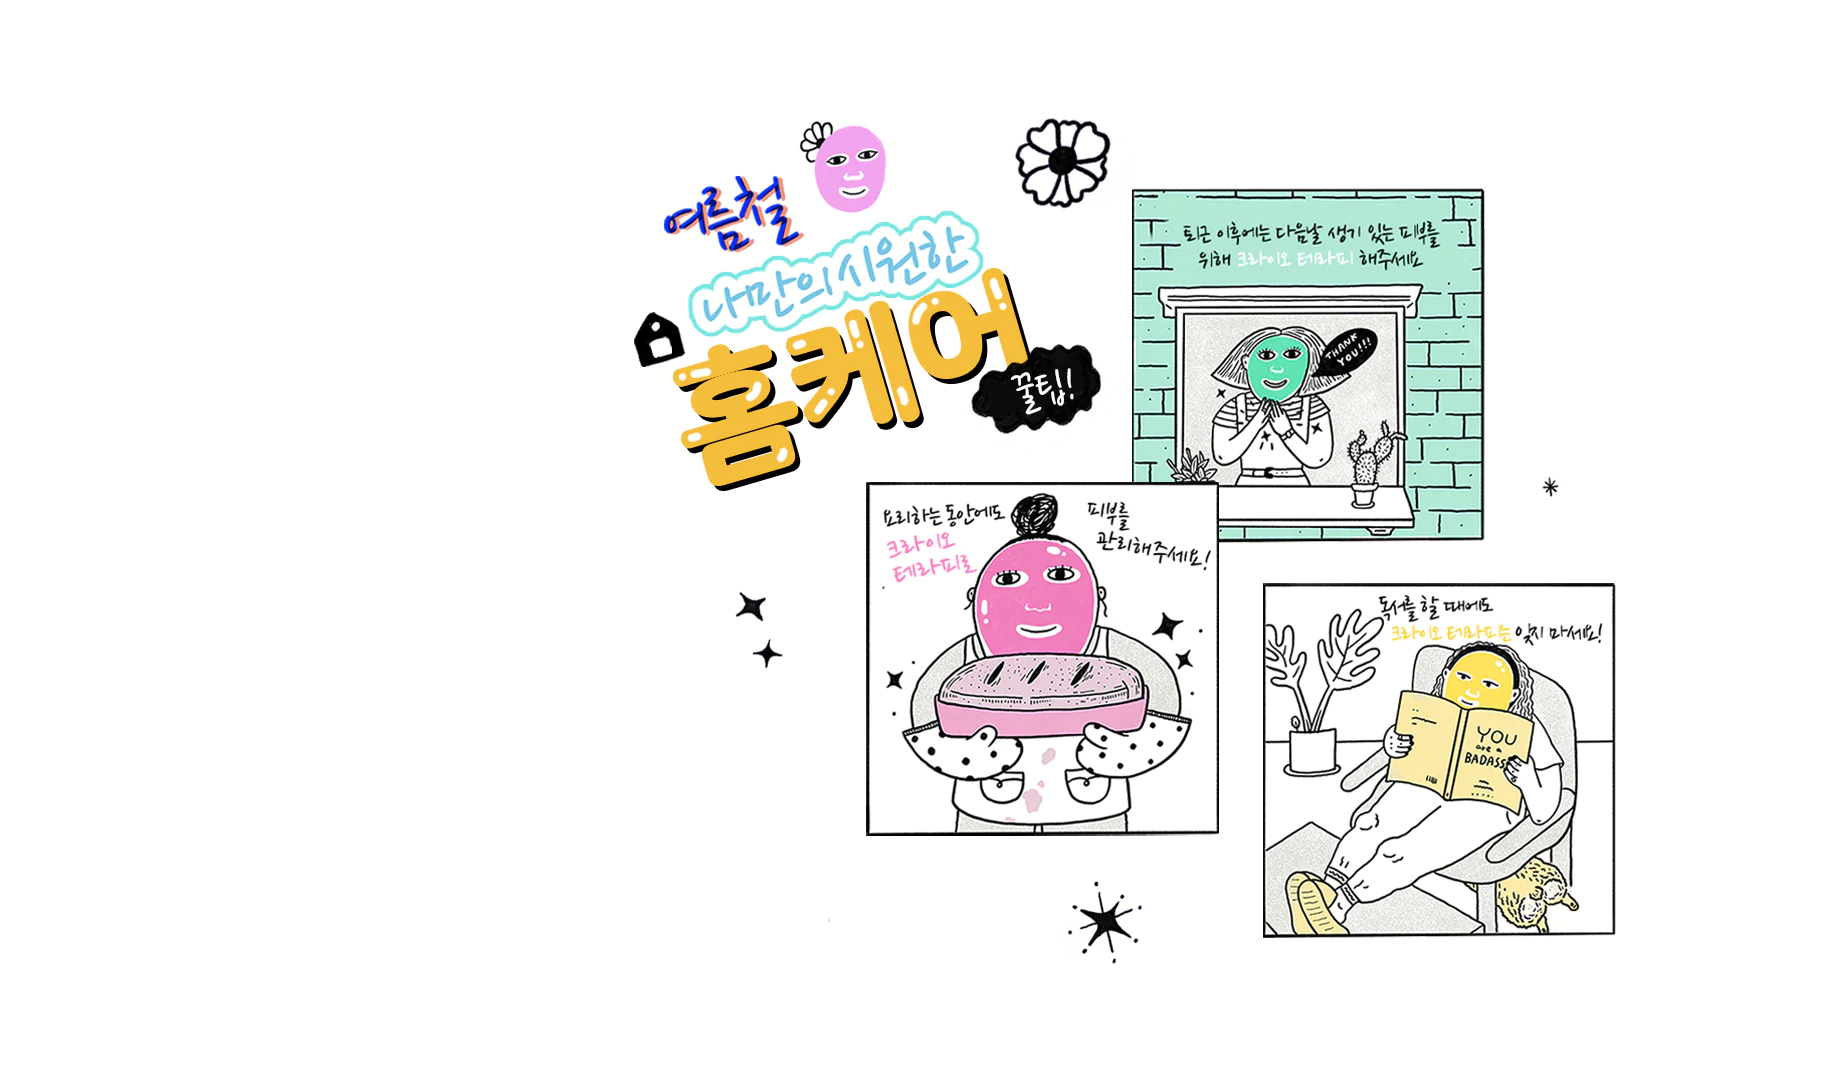 여름철
나만의 시원한
홈케어
꿀팁!
퇴근 이후에는 다음날 생기 있는 피부를
위해 크라이오 테라피 해주세요
THANK
YOU!!!
요리하는 동안에도
크라이오
테라피로
피부를
관리해주세요!
독서를 할 때에도
크라이오 테라피는 잊지 마세요!
YOU
are a
BADASS